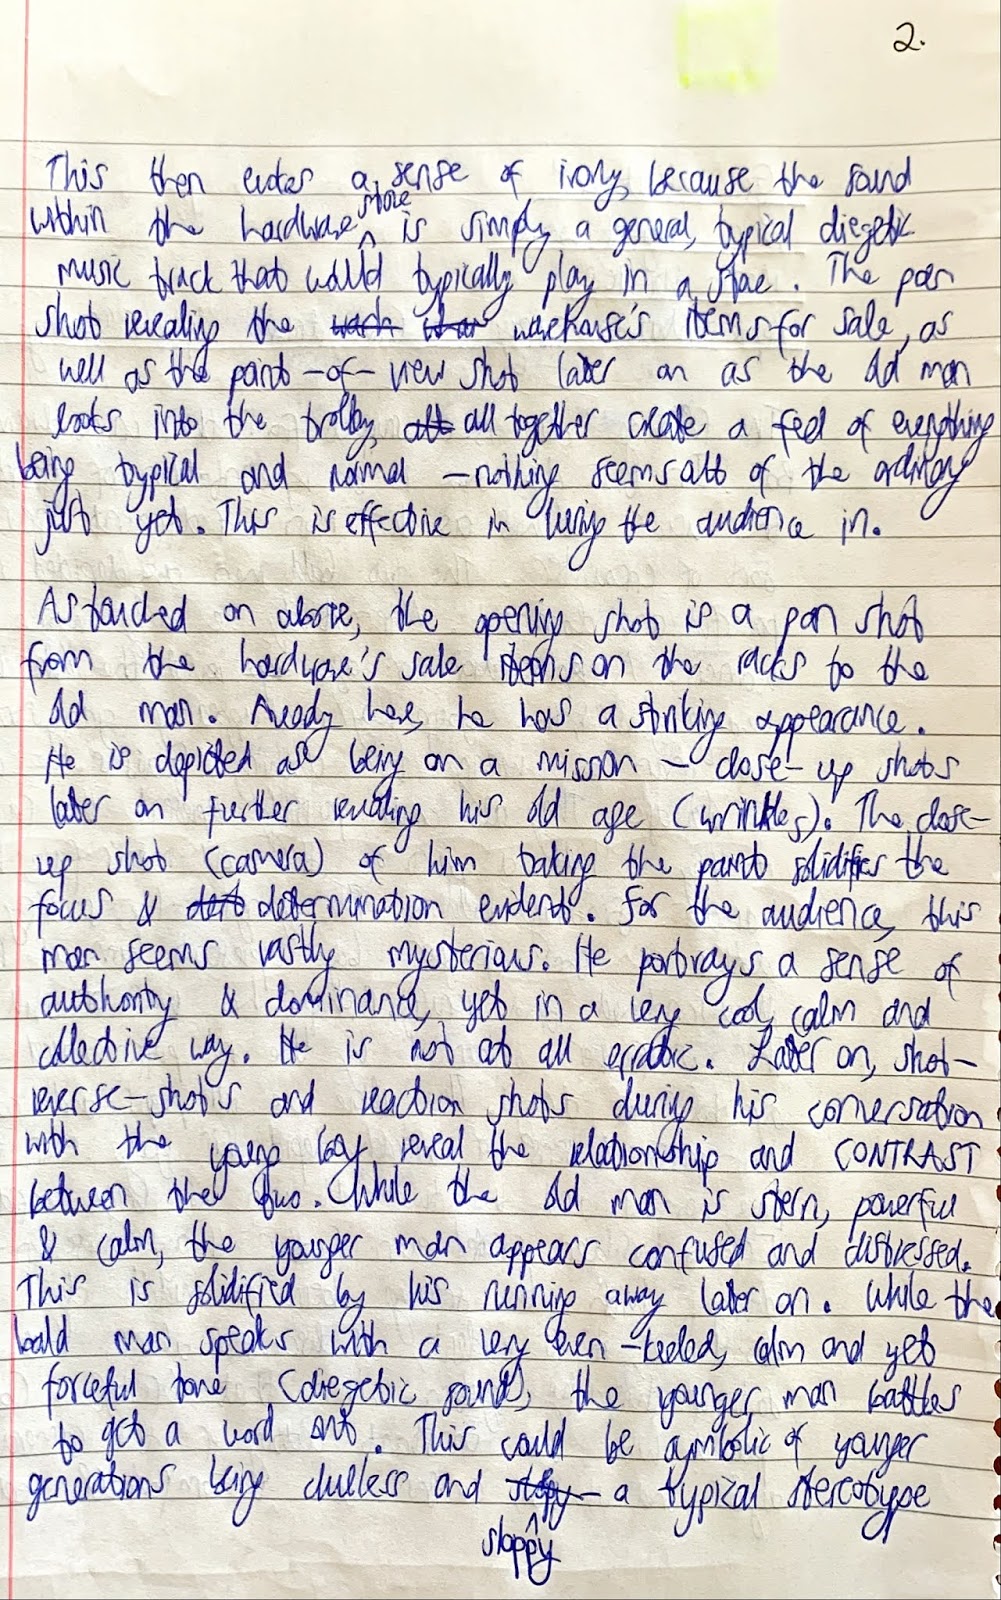 2.
This then evokes a sense of irony, because the sound
within the hardware store is simply a general, typical diegetic
music track that would typically play in a store. The pan
shot revealing the warehouse's items for sale, as
well as the point-of-view shot later on as the old man
looks into the trolley, all together create a feel of everything
being typical and normal - nothing seems out of the ordinary
just yet. This is effective in luring the audience in.
As touched on above, the opening shot is a pan shot
from the hardware's sale items on the racks to the
old man. Already here, he has a striking appearance.
He is depicted as being on a mission - close-up shots
later on further revealing his old age (wrinkles). The close-
up shot (camera) of him taking the paint solidifies the
focus & determination evident. For the audience, this
man seems vastly mysterious. He portrays a sense of
authority & dominance, yet in a very cool, calm and
collective way. He is not at all erratic. Later on, shot-
reverse-shots and reaction shots during his conversation
with the young boy reveal the relationship and CONTRAST
between the two. While the old man is stern, powerful
& calm, the younger man appears confused and distressed.
This is solidified by his running away later on. While the
bald man speaks with a very even-keeled, calm and yet
forceful tone (diegetic sound), the younger man battles
to get a word out. This could be symbolic of younger
generations being clueless and sloppy - a typical stereotype